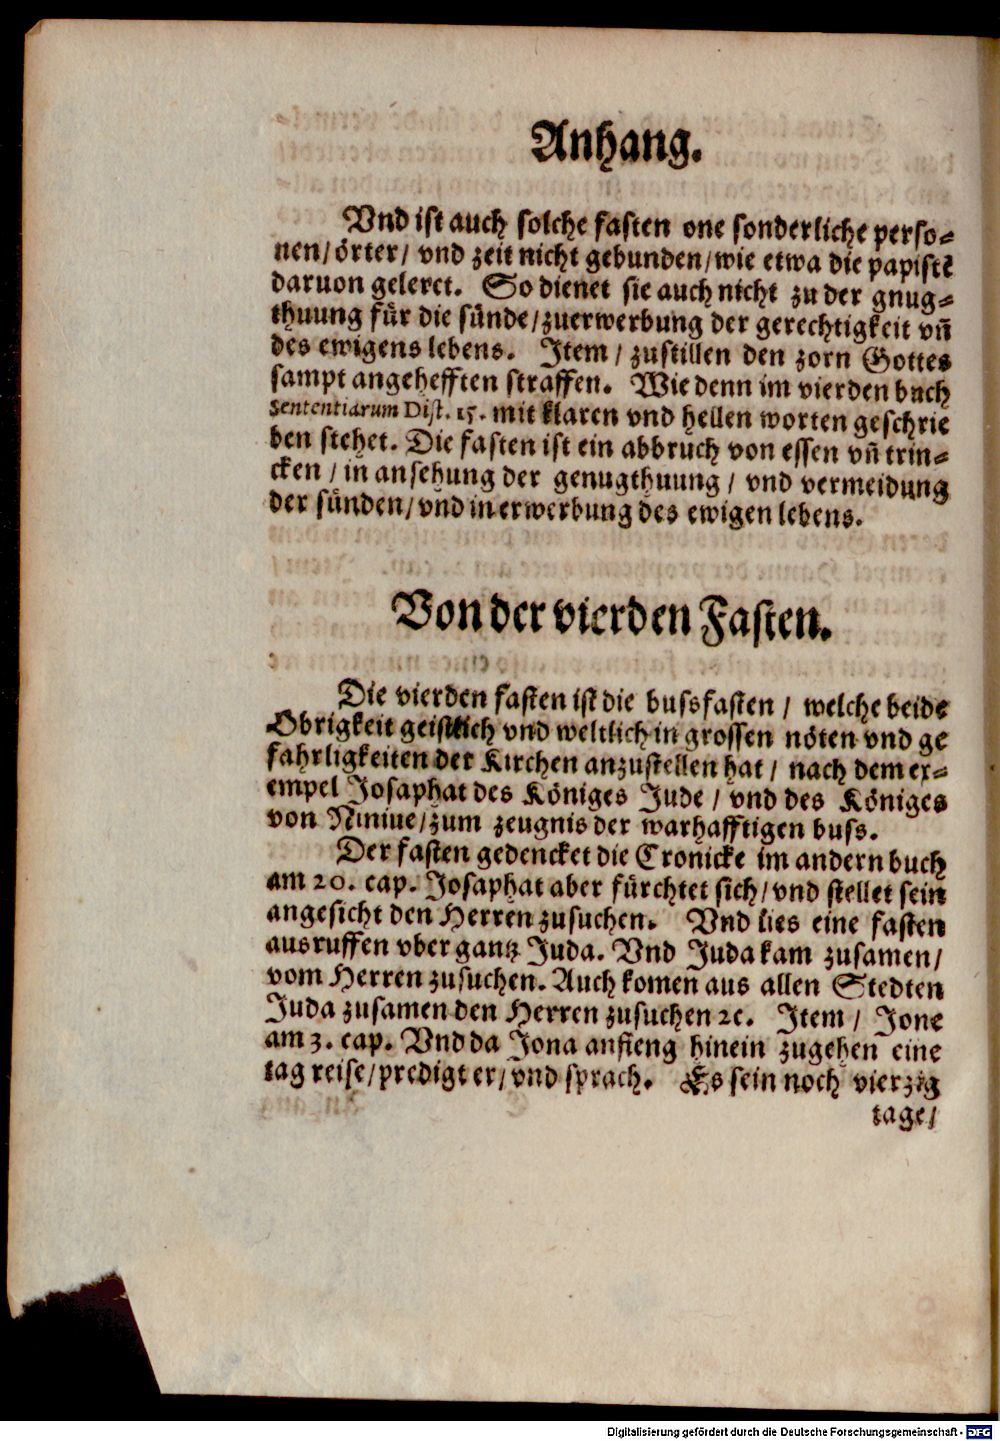 Anhang.
Vnd ist auch solche fasten one sonderliche perso-
nen/ örter/ vnd zeit nicht gebunden/ wie etwa die papistē
daruon geleret. So dienet sie auch nicht zu der gnug-
thuung für die sünde/ zuerwerbung der gerechtigkeit vñ
des ewigens lebens. Item/ zustillen den zorn Gottes
sampt angehefften straffen. Wie denn im vierden buch
Sententiarum Dist. 15. mit klaren vnd hellen worten geschrie
ben stehet. Die fasten ist ein abbruch von essen vñ trin-
cken/ in ansehung der genugthuung/ vnd vermeidung
der sünden/ vnd in erwerbung des ewigen lebens.
Von der vierden Fasten.
Die vierden fasten ist die bussfasten/ welche beide
Obrigkeit geistlich vnd weltlich in grossen nöten vnd ge
fahrligkeiten der Kirchen anzustellen hat/ nach dem ex-
empel Josaphat des Königes Jude/ vnd des Königes
von Niniue/ zum zeugnis der warhafftigen buss.
Der fasten gedencket die Cronicke im andern buch
am 20. cap. Josaphat aber fürchtet sich/ vnd stellet sein
angesicht den Herren zusuchen. Vnd lies eine fasten
ausruffen vber gantz Juda. Vnd Juda kam zusamen/
vom Herren zusuchen. Auch komen aus allen Stedten
Juda zusamen den Herren zusuchen ꝛc. Item/ Jone
am 3. cap. Vnd da Jona anfieng hinein zugehen eine
tag reise/ predigt er/ vnd sprach. Es sein noch vierzig
tage/
Digitalisierung gefördert durch die Deutsche Forschungsgemeinschaft - DFG